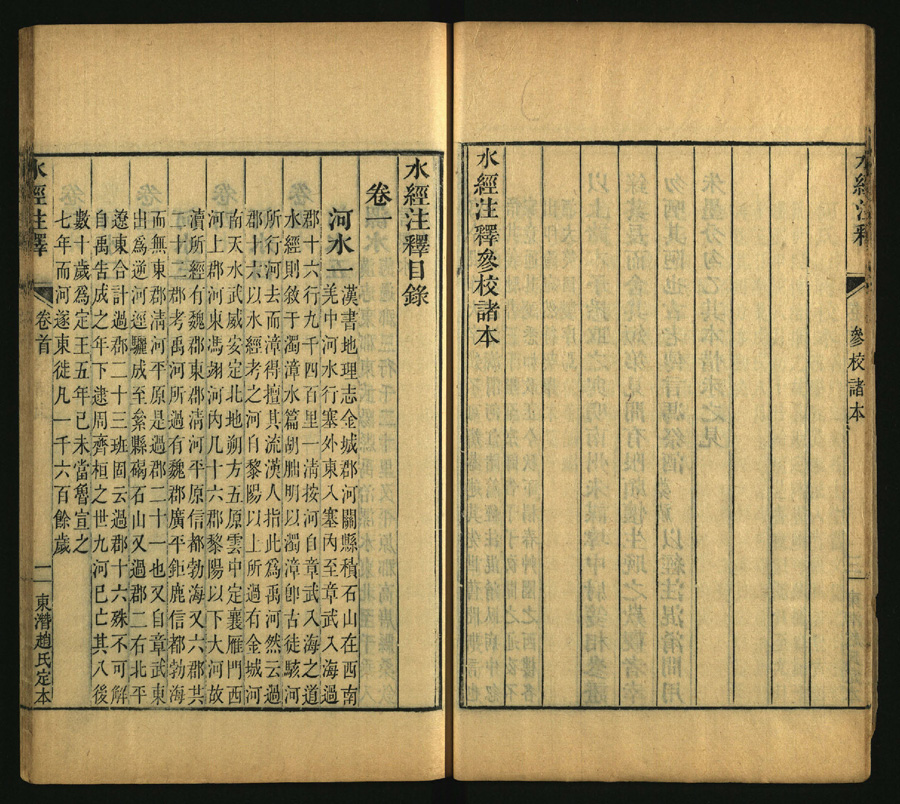 水經注釋
參校諸本
水經注釋參校諸本
水經注釋目錄
卷一
河水一
漢書地理志金城郡河關縣積石山在西南
羌中河水行塞外東入塞內至章武入海過
郡十六行九千四百里一清按河自章武入海之道
水經則敘于濁漳水篇胡朏明以濁漳卽古徒駭河
所行河去而漳得擅其流漢人指此爲禹河然云過
郡十六以水經考之河自黎陽以上所過有金城河
南天水武威安定北地朔方五原雲中定襄雁門西
河上郡河東馮翊河內凡十六郡黎陽以下大河故
瀆所經有魏郡東郡清河平原信都勃海又六郡共
二十二郡考禹河所過有魏郡廣平鉅鹿信都勃海
而無東郡清河平原是過郡二十一也又自章武東
出爲逆河逕驪成至絫縣碣石山又過郡二右北平
遼東合計過郡二十三班固云過郡十六殊不可解
自禹告成之年下逮周齊桓之世九河已亡其八後
數十歲爲定王五年己未當魯宣之
七年而河遂東徙凡一千六百餘歲
水經注釋
卷首
一
東潛趙氏定本